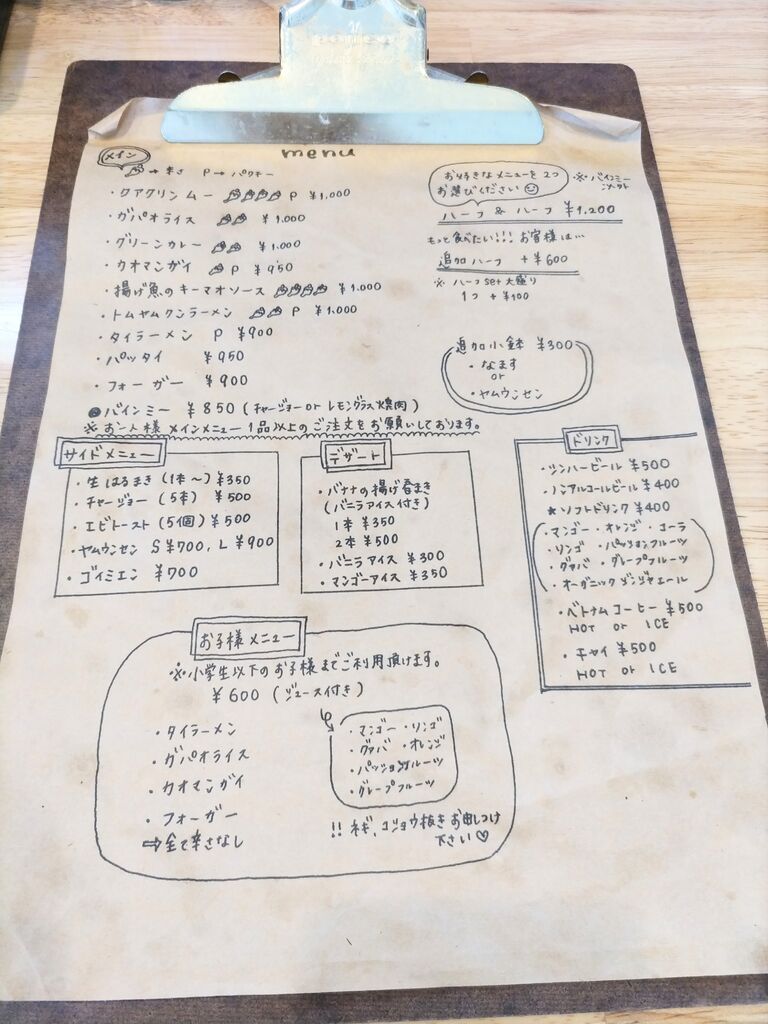 menu
メイン
→ 辛さ P → パクチー
・クアクリンムー P ¥1,000
・ガパオライス ¥1,000
・グリーンカレー ¥1,000
・カオマンガイ P ¥950
・揚げ魚のキーマオソース ¥1,000
・トムヤムクンラーメン P ¥1,000
・タイラーメン P ¥900
・パッタイ ¥950
・フォーガー ¥900
●バインミー ¥850 (チャージョー or レモングラス焼肉)
※お一人様 メインメニュー1品以上のご注文をお願いしております。
お好きなメニューを2つ
お選びください
※バインミー
ハーフ & ハーフ ¥1,200
もっと食べたい!!! お客様は…
追加ハーフ +¥600
※ハーフset大盛り
1つ +¥100
追加小鉢 ¥300
・なます
or
・ヤムウンセン
サイドメニュー
・生はるまき (1本〜) ¥350
・チャージョー (5本) ¥500
・エビトースト (5個) ¥500
・ヤムウンセン S¥700, L¥900
・ゴイミエン ¥700
デザート
・バナナの揚げ春まき
(バニラアイス付き)
1本 ¥350
2本 ¥500
・バニラアイス ¥300
・マンゴーアイス ¥350
ドリンク
・シンハービール ¥500
・ノンアルコールビール ¥400
★ソフトドリンク ¥400
・マンゴー ・オレンジ ・コーラ
・リンゴ ・パッションフルーツ
・グァバ ・グレープフルーツ
・オーガニックジンジャエール
・ベトナムコーヒー ¥500
HOT or ICE
・チャイ ¥500
HOT or ICE
お子様メニュー
※小学生以下のお子様までご利用頂けます。
¥600 (ジュース付き)
・タイラーメン
・ガパオライス
・カオマンガイ
・フォーガー
⇒全て辛さなし
・マンゴー ・リンゴ
・グァバ ・オレンジ
・パッションフルーツ
・グレープフルーツ
!! ネギ、コショウ抜き お申しつけ
下さい♡